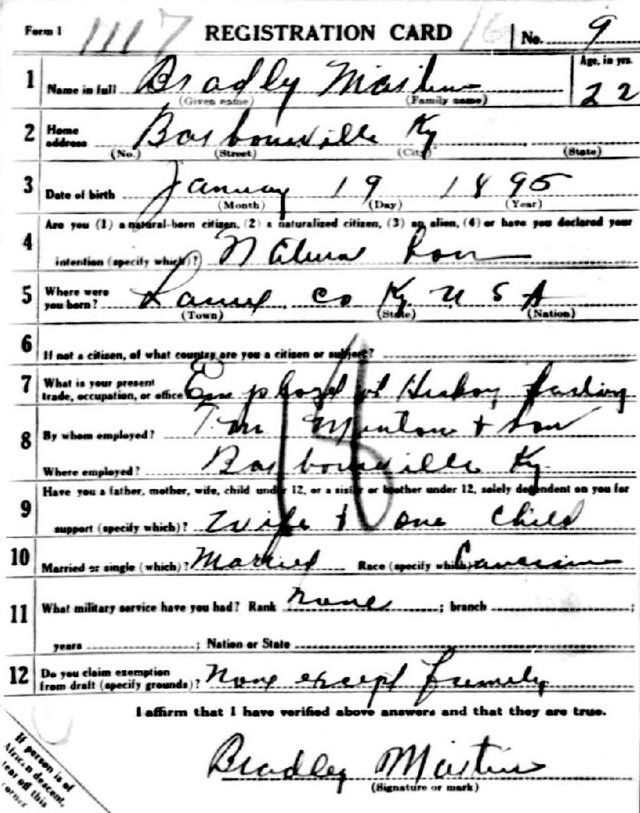 Form 1 1117 REGISTRATION CARD 16 No. 9
1 Name in full Bradly Martin Age, in yrs. 22
(Given name) (Family name)
2 Home address Barbourville Ky
(No.) (Street) (City) (State)
3 Date of birth January 19 1895
(Month) (Day) (Year)
4 Are you (1) a natural-born citizen, (2) a naturalized citizen, (3) an alien, (4) or have you declared your
intention (specify which)? Natural Born
5 Where were you born? Laurel Co Ky U S A
(Town) (State) (Nation)
6 If not a citizen, of what country are you a citizen or subject?
7 What is your present trade, occupation, or office Employed at Hickory
8 By whom employed? Minton & Son
Where employed? Barbourville Ky.
9 Have you a father, mother, wife, child under 12, or a sister or brother under 12, solely dependent on you for
support (specify which)? Wife & one child
10 Married or single (which)? Married Race (specify which)
11 What military service have you had? Rank none ; branch ;
years ; Nation or State
12 Do you claim exemption from draft (specify grounds)? None except family
I affirm that I have verified above answers and that they are true.
Bradley Martin
(Signature or mark)
If person is of
African descent,
tear off this
corner